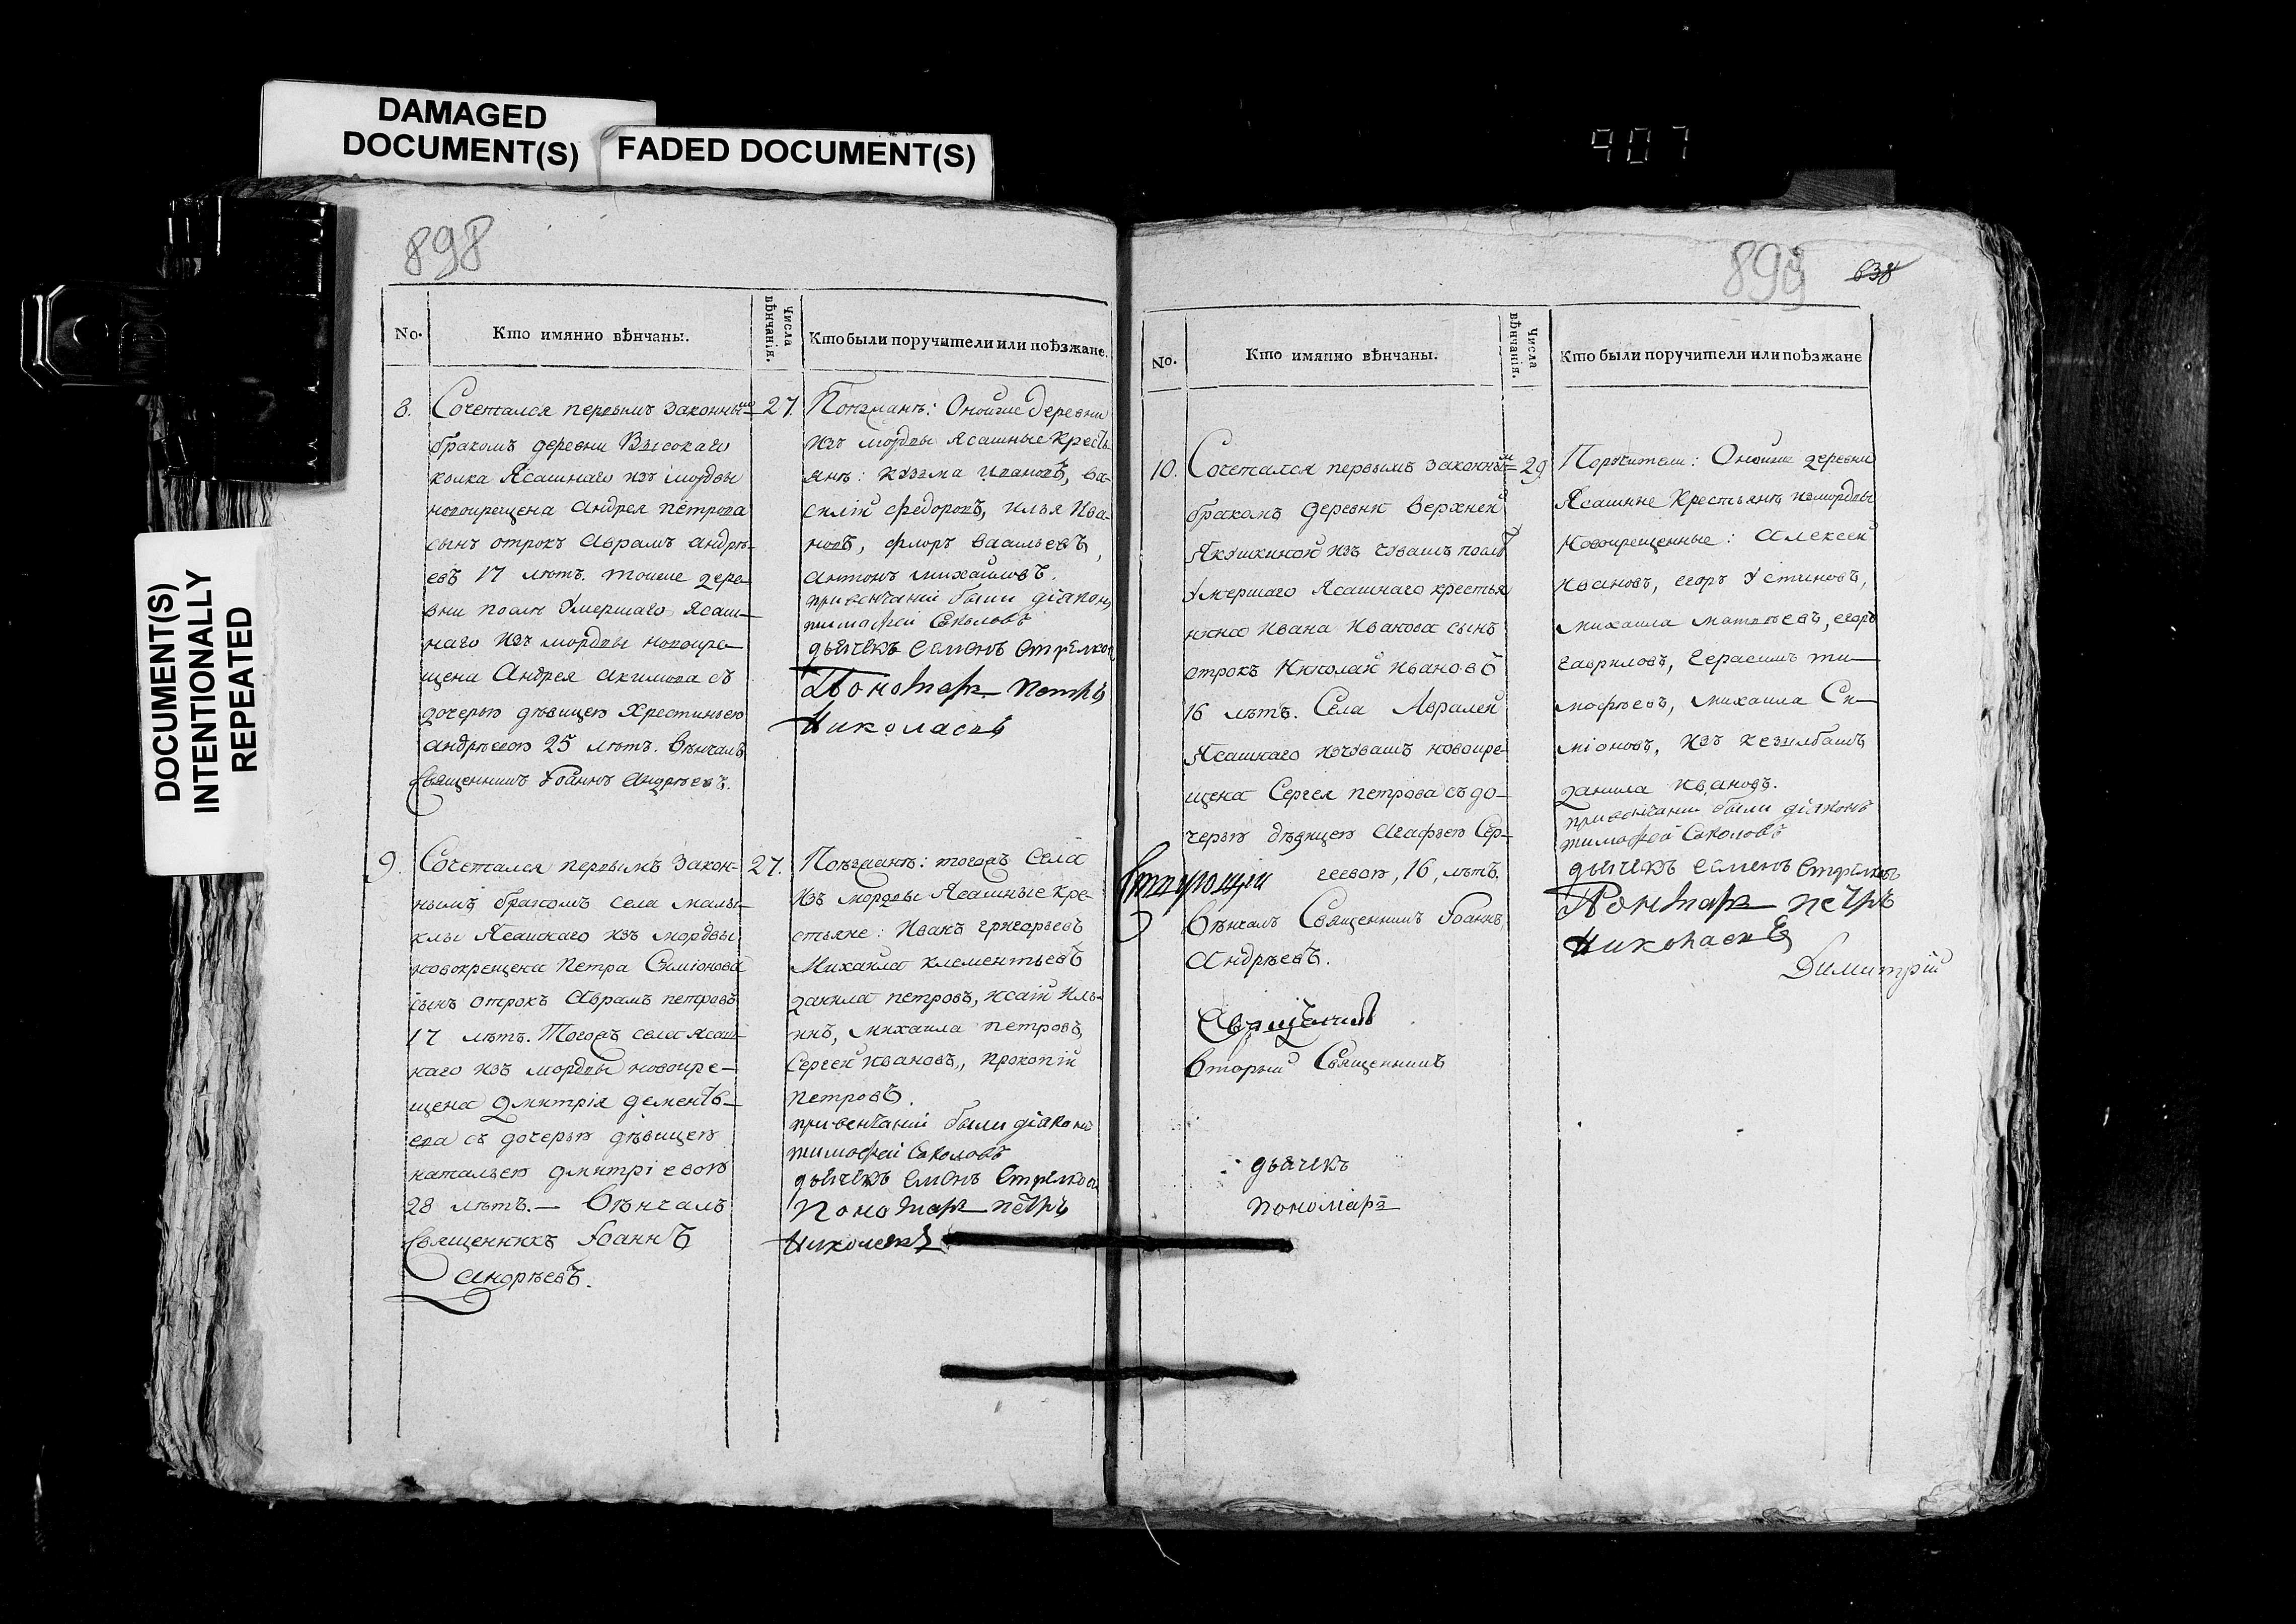 DAMAGED
DOCUMENT(S)
FADED DOCUMENT(S)
DOCUMENT(S)
INTENTIONALLY
REPEATED
907
898
No.
Кто имянно вѣнчаны.
Числа
вѣнчанія.
Кто были поручители или поѣзжане.
8.
Сочетался первымъ законны
бракомъ деревни Высокаго
колка Ясашнаго изъ мордвы
новокрещена Андрея петрова
сынъ отрокъ Аврамъ андрѣ-
евъ 17 лѣтъ. тоеже дере-
вни послѣ Умершаго Ясаш-
наго изъ мордвы новокре-
щена Андрея Акимова съ
дочерью дѣвицею Христиньею
андрѣевою 25 лѣтъ. вѣнчалъ
Священникъ Іоаннъ Андрѣевъ.
27.
Поезжанѣ: Оноиже деревни
изъ мордвы Ясашные кресть
янѣ: Козма Ивановъ, ва-
силій федоровъ, илья Ива-
новъ, флоръ васильевъ,
антонъ михаиловъ.
привенчаніи были діаконъ
тимофей Соколовъ
дьячекъ семенъ стрелков
Пономарь петръ
Николаевъ
9.
Сочетался первымъ закон-
нымъ бракомъ села малы-
клы Ясашнаго изъ мордвы
новокрещена Петра Симіонова
сынъ отрокъ Аврамъ петровъ
17 лѣтъ. Тогожъ села Ясаш-
наго изъ мордвы новокре-
щена Дмитрія дементь-
ева съ дочерью дѣвицею
натальею дмитріевою
28 лѣтъ. — Вѣнчалъ
Священникъ Іоаннъ
Андрѣевъ.
27.
Поѣзжанѣ: тогожъ села
изъ мордвы Ясашные кре-
стьяне: Иванъ григорьевъ
Михаила клементьевъ
данила петровъ, исаій Иль-
инъ, михаила петровъ,
Сергей ивановъ, прокопій
петровъ.
привенчаніи были діаконъ
тимофей Соколовъ
дьячекъ семенъ стрелков
Пономарь петръ
Николаевъ
899
638
No.
Кто имянно вѣнчаны.
Числа
вѣнчанія.
Кто были поручители или поѣзжане
10.
Сочетался первымъ законны
бракомъ деревни верхней
Якушкиной изъ чувашъ послѣ
Умершаго Ясашнаго крестья
нина Ивана Иванова сынъ
отрокъ Николай ивановъ
16 лѣтъ. Села Авралей
Ясашнаго изчувашъ новокре-
щена Сергея петрова съ до-
черью дѣвицею Агафьею Сер-
геевою, 16, лѣтъ.
Вѣнчалъ Священникъ Іоаннъ
Андрѣевъ.
Священникъ
вторый Священникъ
дьячекъ
пономарь
29.
Поручители: Оноиже деревни
Ясашне Крестьянѣ измордвы
новокрещенные: Алексей
Ивановъ, егоръ Устиновъ,
михаила матвѣевъ, егоръ
гавриловъ, Герасимъ ти-
мофѣевъ, михаила Си-
міоновъ, изъ кезилбашъ
данила ивановъ.
привенчании были діаконъ
тимофей Соколовъ
дьячекъ семенъ стрелковъ
Пономарь петръ
Николаевъ
Димитрій